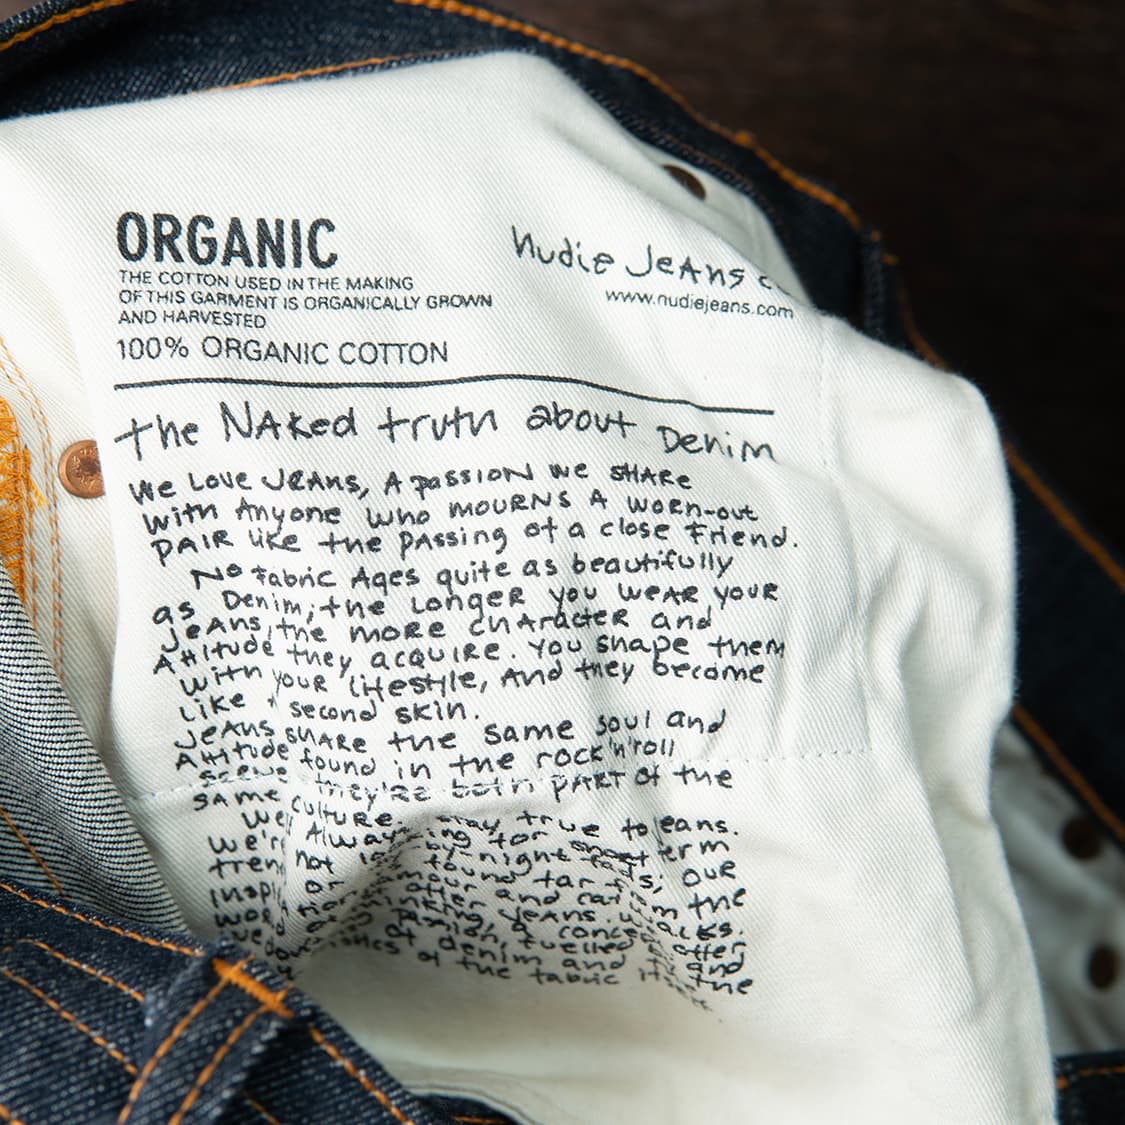 ORGANIC
THE COTTON USED IN THE MAKING
OF THIS GARMENT IS ORGANICALLY GROWN
AND HARVESTED
100% ORGANIC COTTON
Nudie Jeans c
www.nudiejeans.com
The Naked truth about Denim
We Love Jeans, A passion we share
with Anyone who mourns A worn-out
pair like the passing of a close Friend.
No fabric Ages quite as beautifully
as Denim; the Longer you wear your
Jeans, the more character and
Attitude they acquire. You shape them
with your lifestyle, And they become
like A second skin.
Jeans share the same soul and
Attitude found in the rock'n'roll
scene they're both part of the
same culture.
We Always stay true to jeans.
We're not for short term
by-night fads; our
found far from the
and cat
after Jeans.
fuelled
of denim and the
of the fabric itself